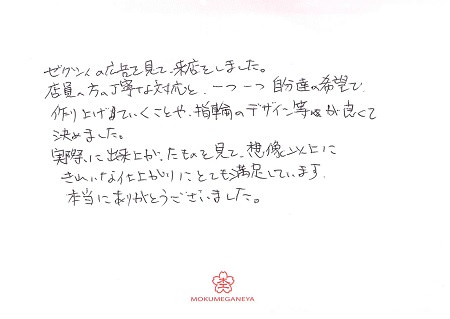 ゼクシィの広告を見て、来店をしました。
店員の方の丁寧な対応と、一つ一つ自分達の希望で、
作り上げていくことや、指輪のデザイン等が良くて
決めました。
実際に出来上がったものを見て、想像以上に
きれいな仕上がりにとても満足しています。
本当にありがとうございました。
MOKUMEGANEYA